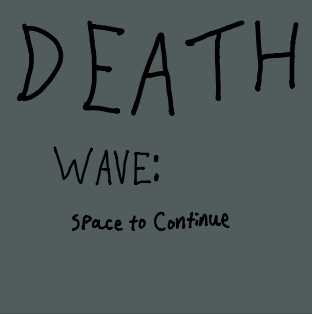 DEATH
WAVE:
Space to Continue